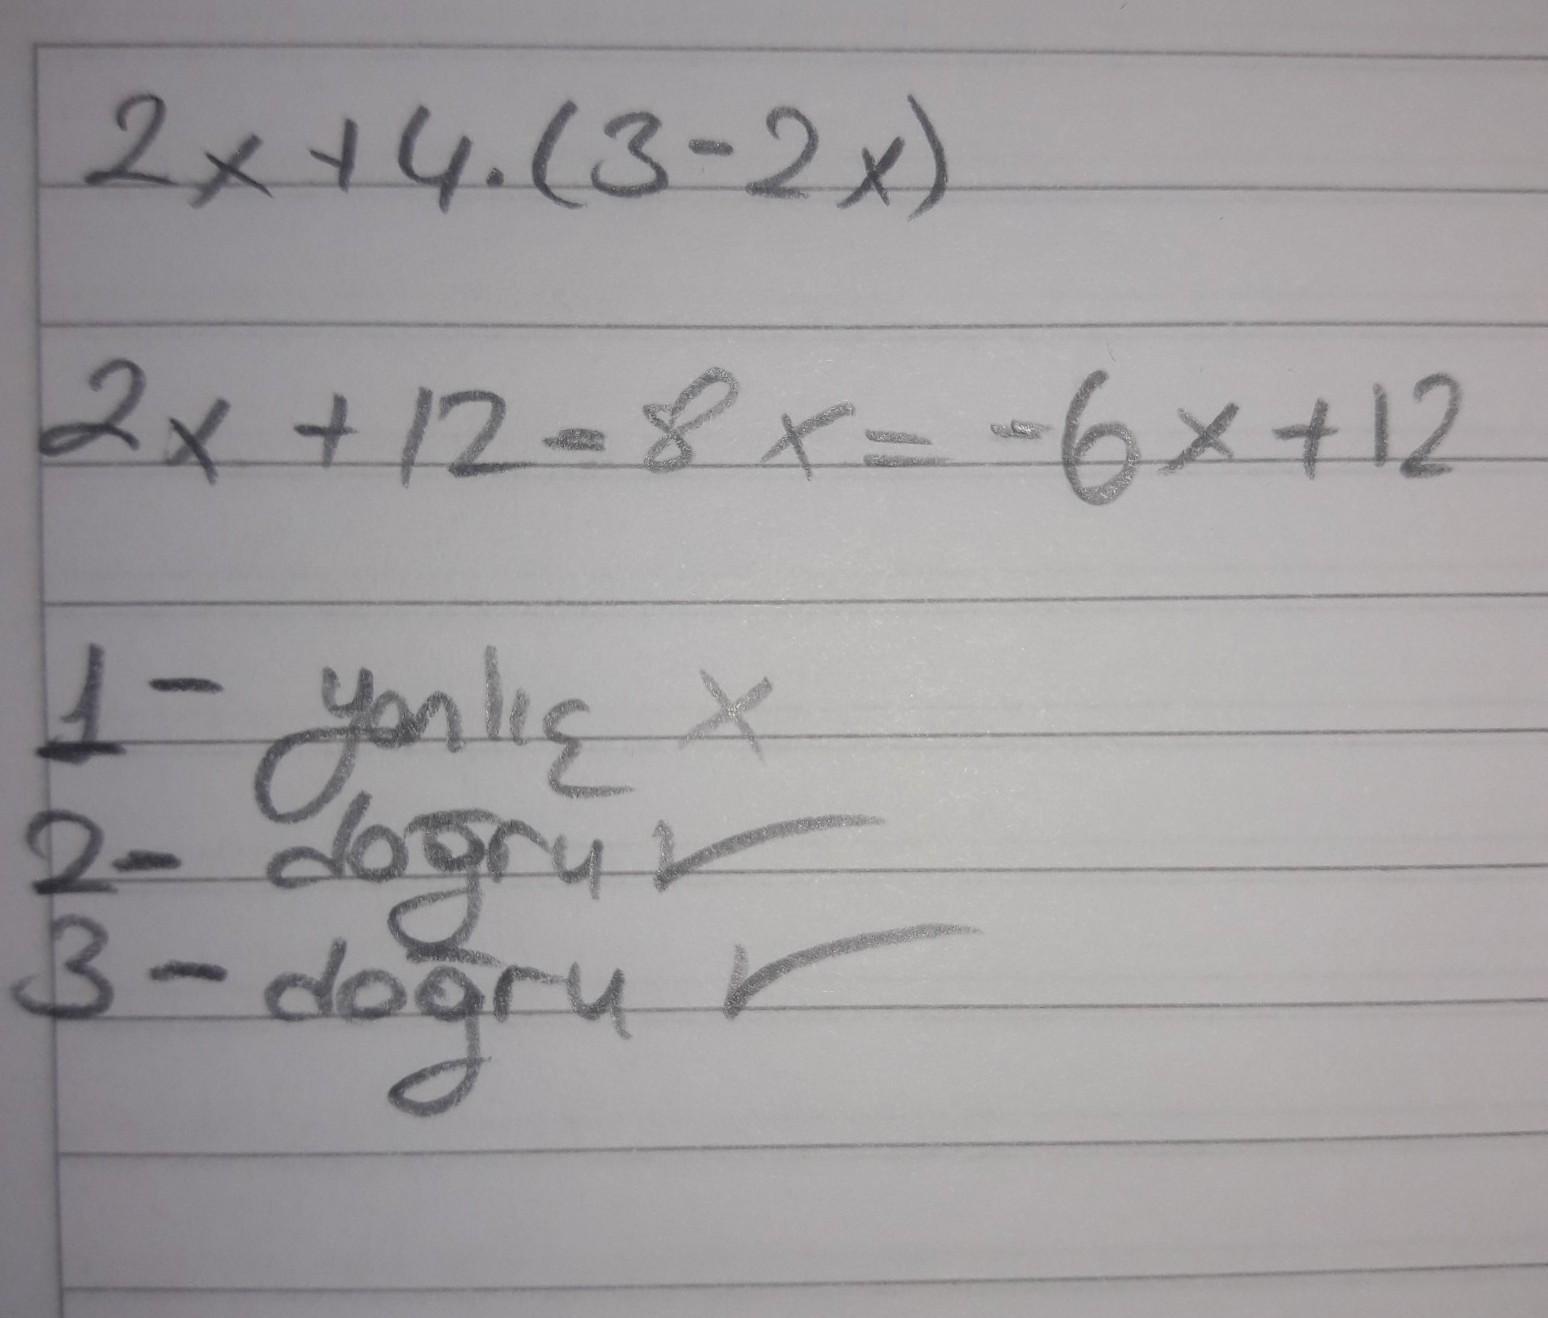 2x+4.(3-2x)
2x+12-8x=-6x+12
1- yanlış x
2- doğru ✓
3- doğru ✓